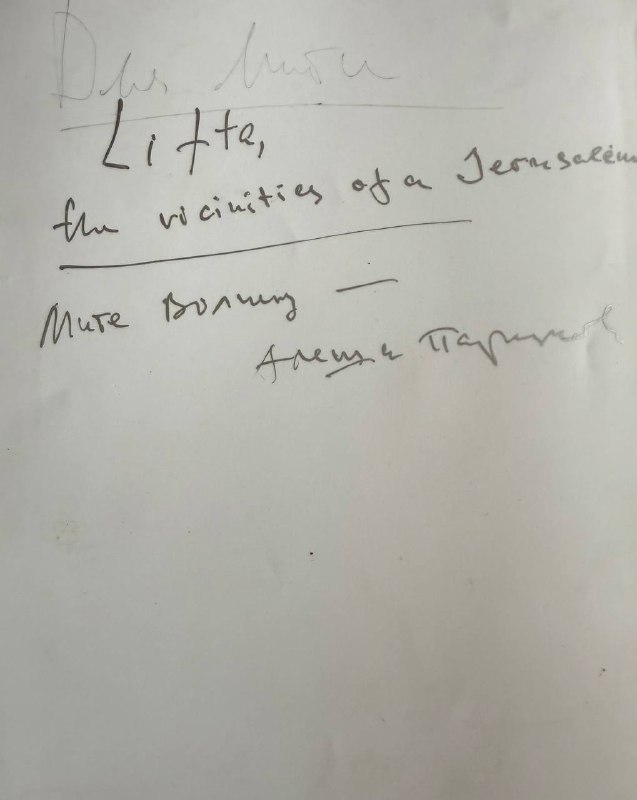 Для Мити
Lifta,
the vicinities of a Jerusalem
Мите Волчеку —
Алеша Парщиков